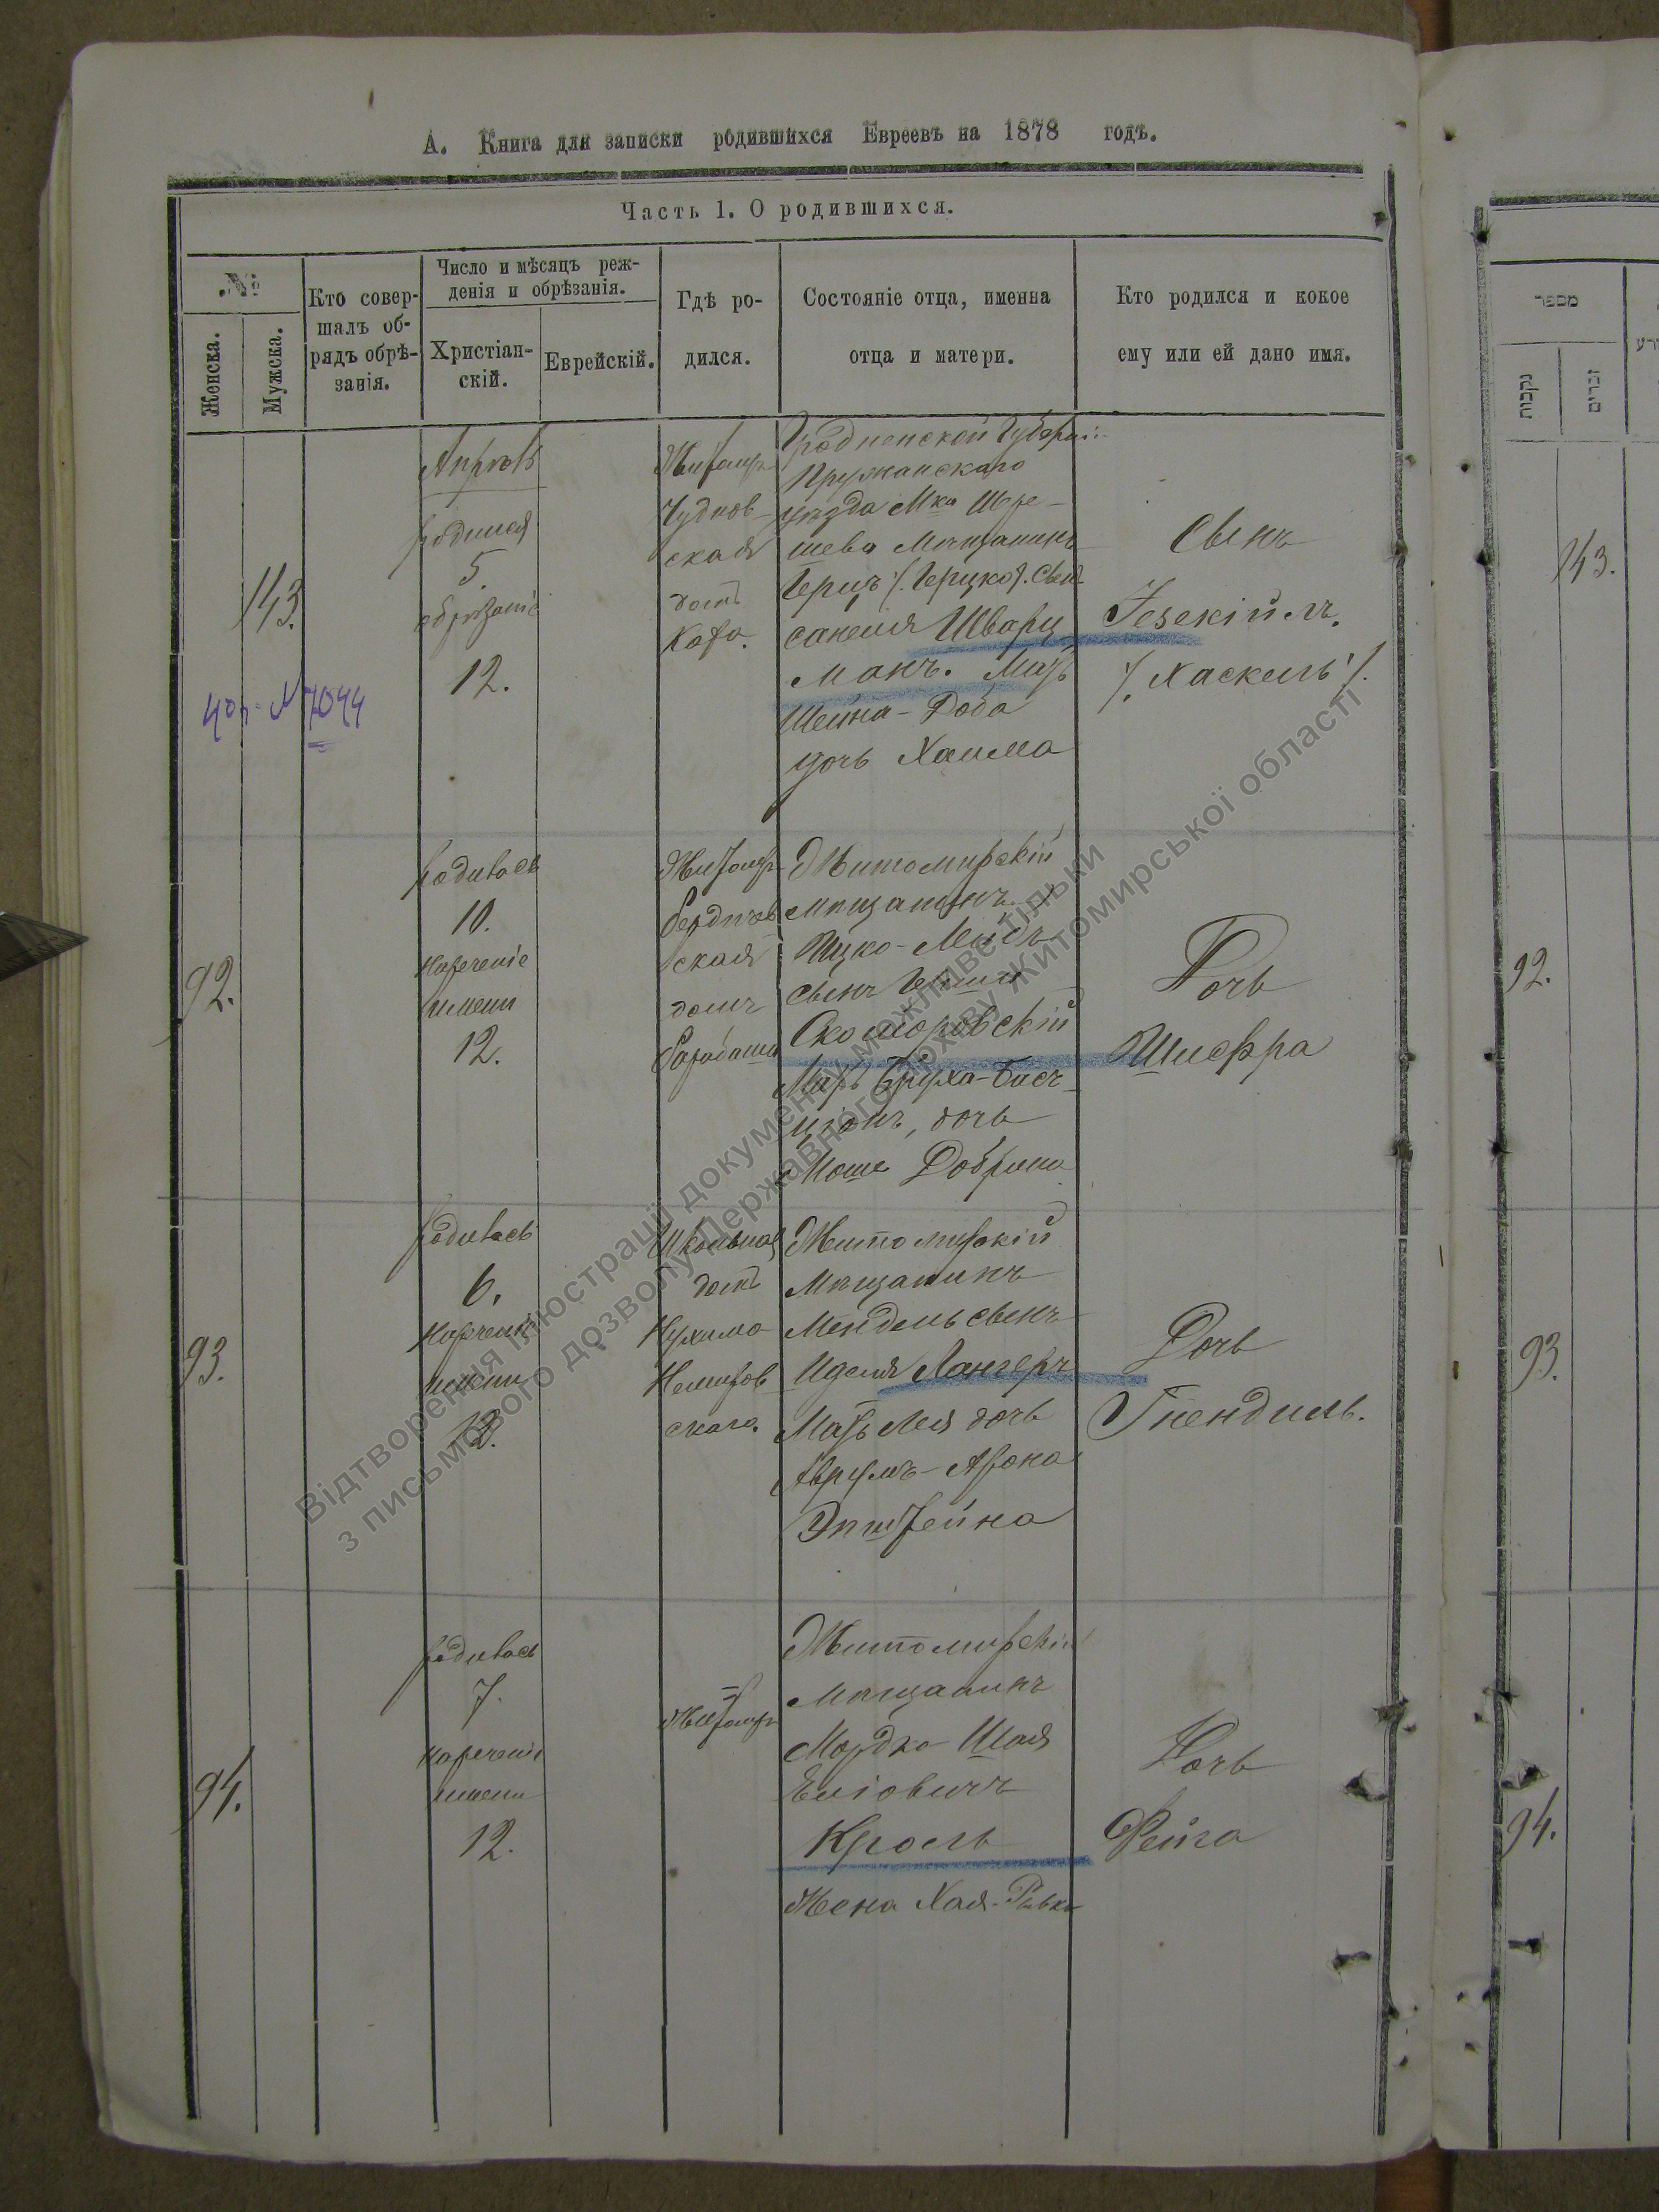 А. Книга для записки родившихся Евреевъ на 1878 годъ.
Часть 1. О родившихся.
№
Женска.
Мужска.
Кто совер-
шалъ об-
рядъ обрѣ-
занія.
Число и мѣсяцъ реж-
денія и обрѣзанія.
Христіан-
скій.
Еврейскій.
Гдѣ ро-
дился.
Состояніе отца, именна
отца и матери.
Кто родился и кокое
ему или ей дано имя.
143.
Апрѣль
родился
5.
обрѣзаніе
12.
Житомръ
Чуднов-
ская
домъ
Кота.
Гродненской Губерніи
Пружанскаго
уѣзда Мка Шере-
шева Мѣщанинъ
Герцъ /Герцко/. Сынъ
Шварц
манъ. Мать
Шейна-
дочь Хаима
Сынъ
Іезекіилъ.
/. Хаскель /.
7044
92.
родилась
10.
нареченіе
имени
12.
Житомръ
Бердичев
ская
домъ
Житомирскій
мѣщанинъ
Ицко-Лейбъ
сынъ Герша
Скоморовскій
Мать Бруха-Бась-
ціонъ, дочь
Моше
Дочь
Шифра
93.
родилась
6.
нареченіе
имени
12.
Школьная
домъ
Нухима
Немиров
скаго.
Житомирскій
Мѣщанинъ
Мендель сынъ
Иделя Лангеръ
Мать Лея дочь
Аврумъ-Арона
Эпштейна
Дочь
Гнендиль.
94.
родилась
7.
нареченіе
имени
12.
Житомръ
Житомирскій
Мѣщанинъ
Мордко Шая
Еліовичъ
Кроль
Жена Хая-Ривка
Дочь
Фейга
מספר
נקבות
זכרים
143.
92.
93.
94.
Відтворення ілюстрації документу можливе тільки
з письмового дозволу Державного архіву Житомирської області